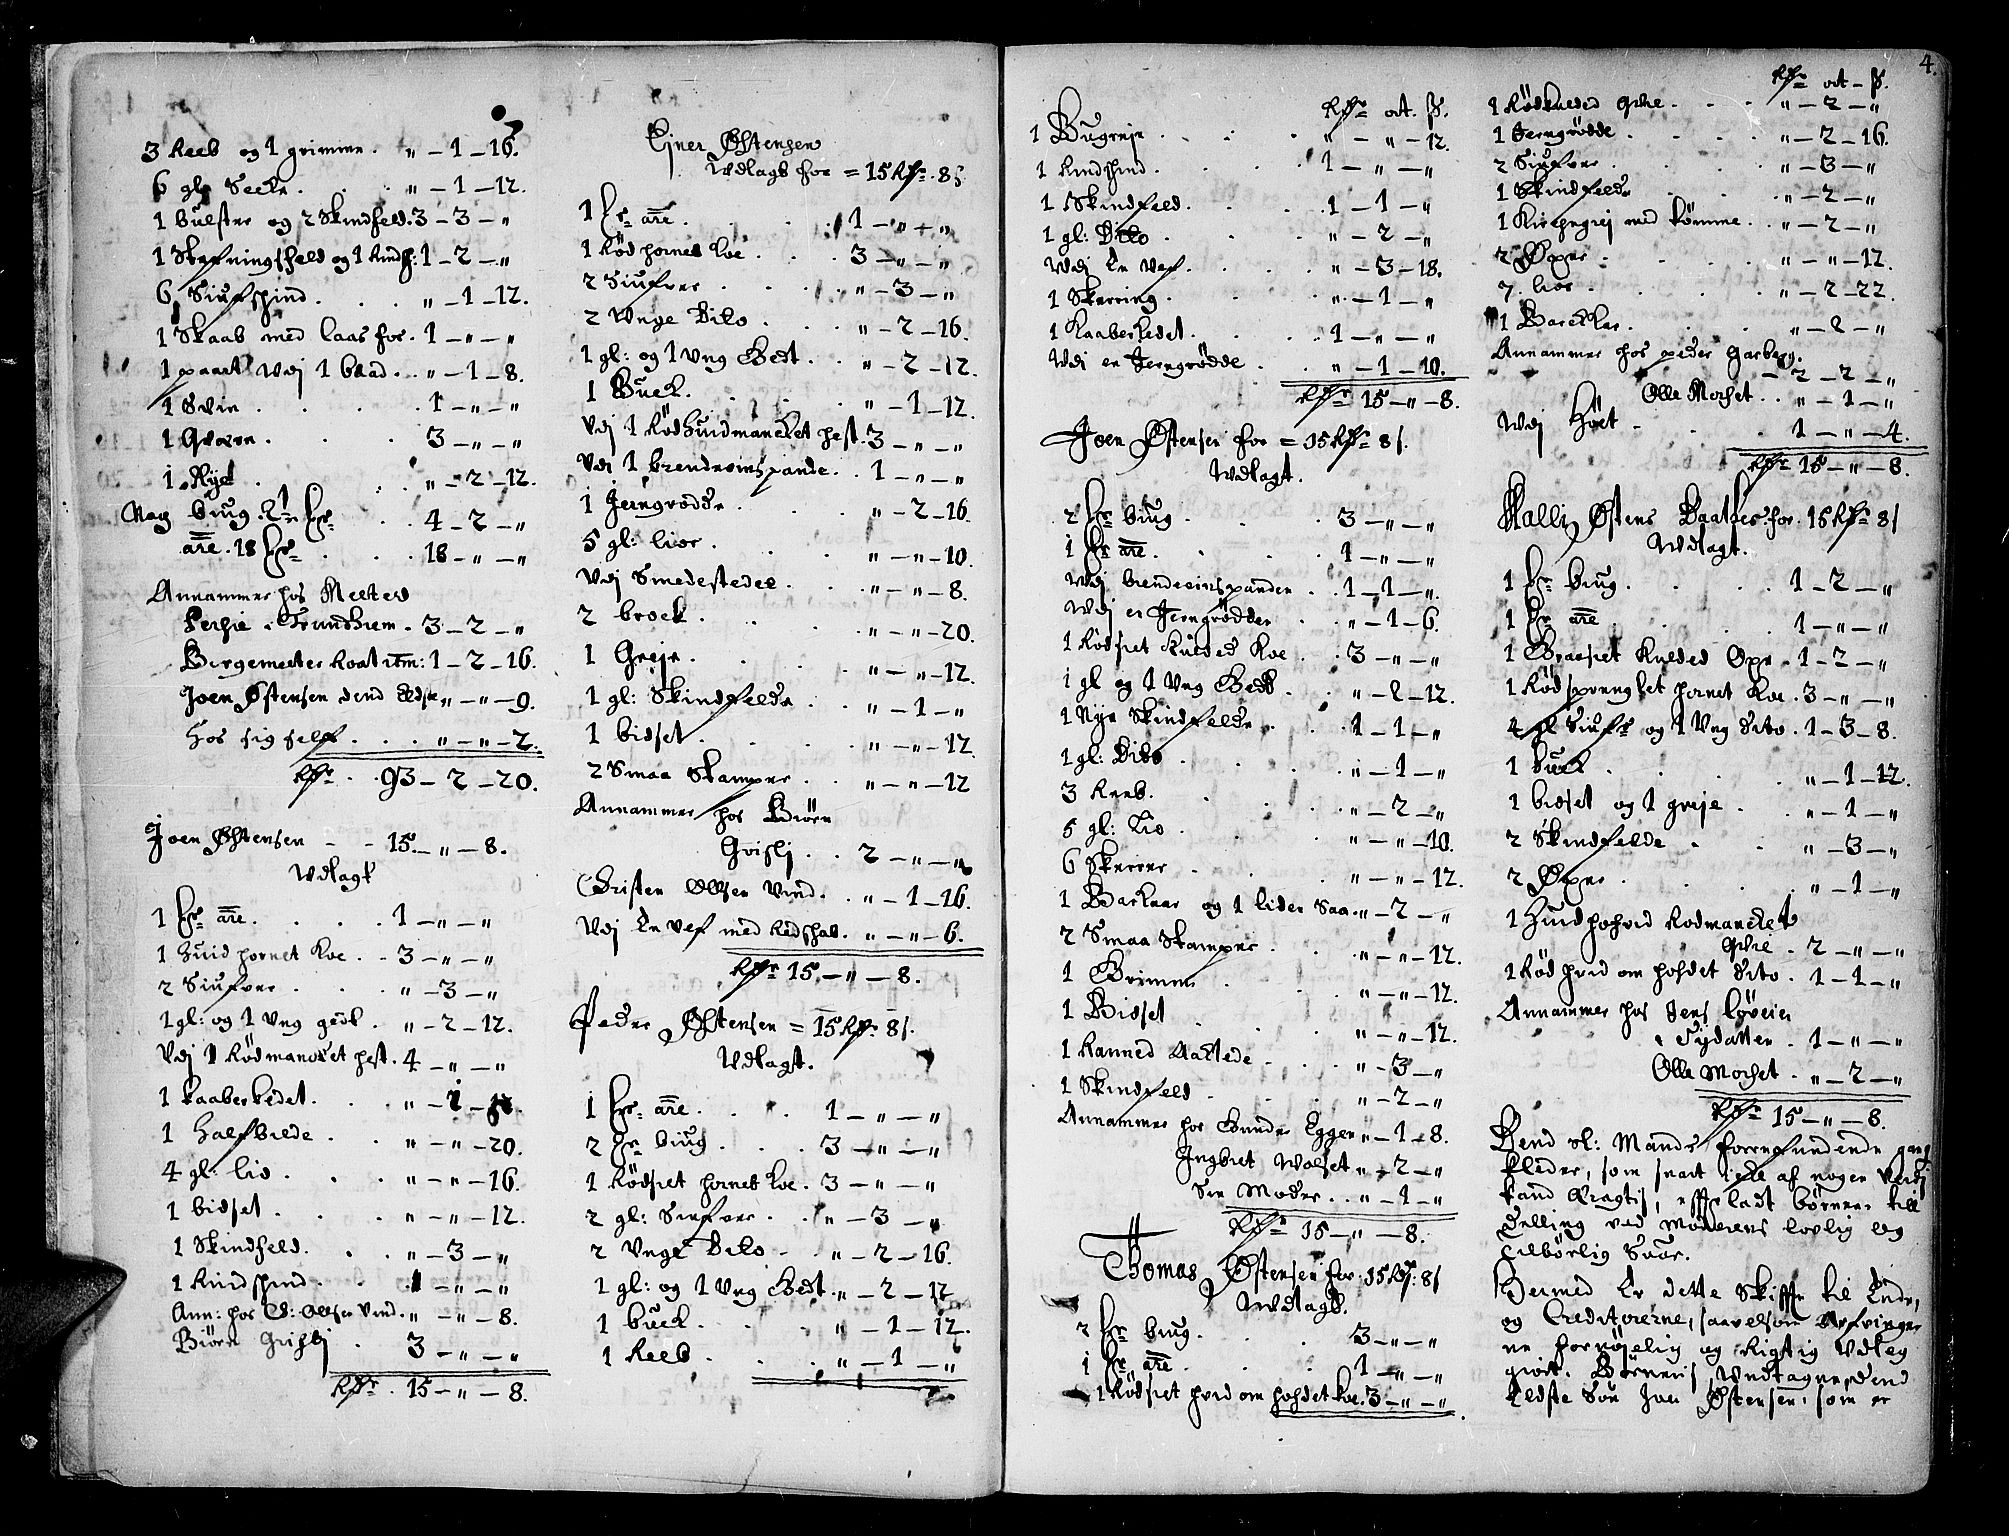 3 Reeb og 1 grimme . " – 1 – 16.
6 gl. Secke . . . " – 1 – 12.
1 bulster og 2 Skindfeld. 3 – 3 – "
1 Skefningsfeld og 1 Kindsf: 1 – 2 – "
6 Siufskind . . . " – 1 – 12.
1 Skaab med laas for . 1 – " – "
1 paart Udj 1 baad . . " – 1 – 8.
1 Svin . . . 1 – " – "
1 Qværn . . . 3 – " – "
1 Ryet . . . " – 2 – 12.
Nog biug 2 1/2 tr . 4 – 2 – "
are . 18 tr . . . 18 – " – "
Annammer hos Mester
Persie i Trundhiem . 3 – 2 – "
Borgemester Hoatum: 1 – 2 – 16.
Joen Østensen dend Eldste " – " – 9.
hos sig self . . . " – " – 2.
Rdr . . 93 – 2 – 20.
Joen Østensen – – 15. – " – 8.
Udlagt
1 tr are . . . 1 – " – "
1 huid hornet Koe . – 3 – " – "
2 Siufver . . . " – 3 – "
1 gl: og 1 Ung gedt . " – 2 – 12.
Udj 1 Rødmancket hest . 4 – " – "
1 kaaberkedet . . .
1 halfbilde . . . " – " – 20.
4 gl: lio . . . " – " – 16.
1 bidset . . . " – " – 12.
1 Skindfeld . . . " – 3 – "
1 Kindskind . . . 1 – " – "
Ann: hos C: Ollsen Vind . " – " – 8.
Biørn Grislj . 3 – " – "
Rdr . 15 – " – 8.
Ejner Østensen
Udlagt for = 15 Rdr . 8 s
1 tr are . . . 1 – " – "
1 Rød hornet Koe . . . 3 – " – "
2 Siufver . . . " – 3 – "
2 Unge Dito . . " – 2 – 16.
1 gl: og 1 Ung Bedt . . " – 2 – 12.
1 Buck . . . " – 1 – 12.
Udj 1 Rødhuidmancket hest . 3 – " – "
Udj 1 brendevinspande . 1 – " – "
1 Jerngrødde . . . " – 2 – 16.
5 gl: lior . . . " – " – 10.
Udj Smedestedet . . " – " – 8.
2 brock . . . " – " – 20.
1 Greje . . . " – " – 12.
1 gl: Skindfelde . . " – 1 – "
1 bidset . . . " – " – 12.
2 Smaa Stamper . . " – " – 12
Annammer hos Biørn
Grislj . . 2 – " – "
Christen Ollsen Vind . . " – 1 – 16.
Udj En Vef med Redskab . " – " – 6.
Rdr 15. – " – 8.
Peder Østensen = 15 Rdr 8 s.
Udlagt.
1 tr are . . . 1 – " – "
2 tr biug . . . 3 – " – "
1 Rødsiet hornet Koe . 3 – " – "
2 gl: Siufver . . " – 3 – "
2 Unge Dito . . " – 2 – 16.
1 gl: og 1 Ung Bedt . " – 2 – 12
1 buck . . . " – 1 – 12.
1 Reeb . . . " – 1 – "
Rdr ort. s.
1 Bugreje . . . " – " – 12.
1 Kindskind . . . 1 – " – "
1 Skindfeld . . . 1 – 1 – "
1 gl: Dito . . . " – 2 – "
Udj En Vef . . . " – 3 – 18.
1 Skerring . . . " – 1 – "
1 Kaaberkedet . . . 1 – " – "
Udj en Jerngrødde . . " – 1 – 10.
Rdr 15 – " – 8.
Joen Østensen for = 15 Rdr 8 s.
Udlagt.
2 tr biug . . . 3 – " – "
1 tr are . . . 1 – " – "
Udj brendevinspanden . . 1 – 1 – "
Udj en Jerngrødde . . " – 1 – 6.
1 Rødsiet Kuldet Koe . . 3 – " – "
1 gl og 1 Ung Bedt . . " – 2 – 12.
1 Nye Skindfelde . . 1 – 1 – "
1 gl: Dito . . " – 1 – "
3 Reeb . . . " – 2 – "
5 gl: Lio . . . " – " – 10.
6 Skerrer . . . " – " – 12.
1 Barkaar og 1 liden Saa . " – 2 – "
2 Smaa Stamper . . " – " – 12.
1 Grimme . . . " – " – 12.
1 Bidset . . . " – " – 12.
1 Ranned Aaklede . . " – 3 – "
1 Skindfeld . . . " – 2 – "
Annammer hos Gunder Eggen " – 1 – 8.
Ingbret Wolset " – 2 – "
Sin Moder . . " – 1 – "
Rdr 15 – " – 8.
Thomas Østensen for . 15 Rdr: 8 s
Udlagt.
2 tr biug . . . 3 – " – "
1 tr are . . . 1 – " – "
1 Rødsiet hvid om hofdet Koe . 3 – " – "
4.
Rdr ort – s.
1 Rødkuldet Qvie . . . " – 2 – "
1 Jerngrødde . . . " – 2 – 16.
2 Siufver . . . " – 3 – "
1 Skindfelde . . . " – 2 – "
1 Kirchgrej med tømme . . " – 2 – "
2 Øxer . . . " – " – 12.
7. lior . . . " – 2 – 22.
1 Barckar . . . " – 2 – "
Annammer hos peder Garberg.
– 2 – 2 – "
Olle Morset . . " – 1 – "
Udj Høet . . 1 – " – 4.
Rdr 15 – " – 8.
Malli Østens Daatter for . 15 Rdr 8 s
Udlagt.
1 tr biug . . . 1 – 2 – "
1 tr are . . . 1 – " – "
1 Braasiet Kulded Oxe . 1 – 2 – "
1 Rødsprenglet hornet Koe . 3 – " – "
4 gl Siufr og 1 Ung Dito . 1 – 3 – 8.
1 buck . . . " – 1 – 12.
1 bidset og 1 greje . " – 1 – "
2 Skindfelde . . " – 3 – "
2 Øxer . . . " – 1 – "
1 Huidhofvid Rodmancket
Qvie . 2 – " – "
1 Rød hvid om hofdet Dito . 1 – 1 – "
Annammer hos Jens Løveier
i Tydallen . 1 – " – "
Olle Morset . . " – 2 – "
Rdr 15 – " – 8.
Dend sl: Mands forrefundende gang
kleder, som snart icke af nogen Verdj
kand Eragtis, effterladt børnene till
deelling ved Moderens lovlig og
tilbørlig Svar.
Hermed Er dette Skiffte til Ende,
og Creditorerne, saavelsom Arfvinger
ne fornøjelig og Rigtig Udlæg
giort. Børnenis Undtagne, dend
Eldste Søn Jon Østensen, som er